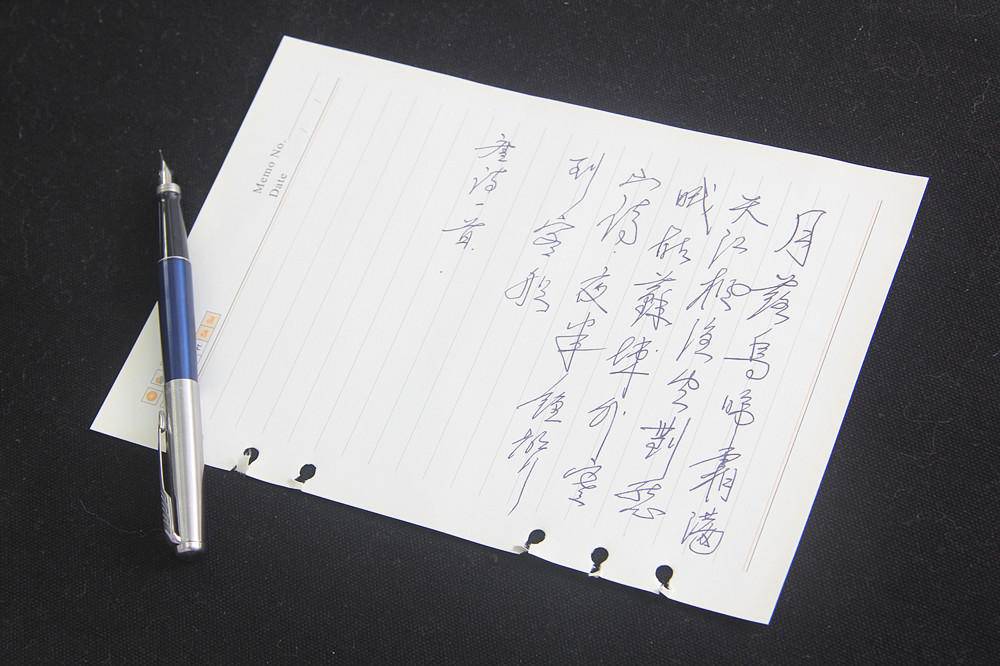 月落烏啼霜满
天江枫渔火對愁
眠姑蘇城外寒
山寺夜半鐘聲
到客船
唐诗一首
Memo No.
Date